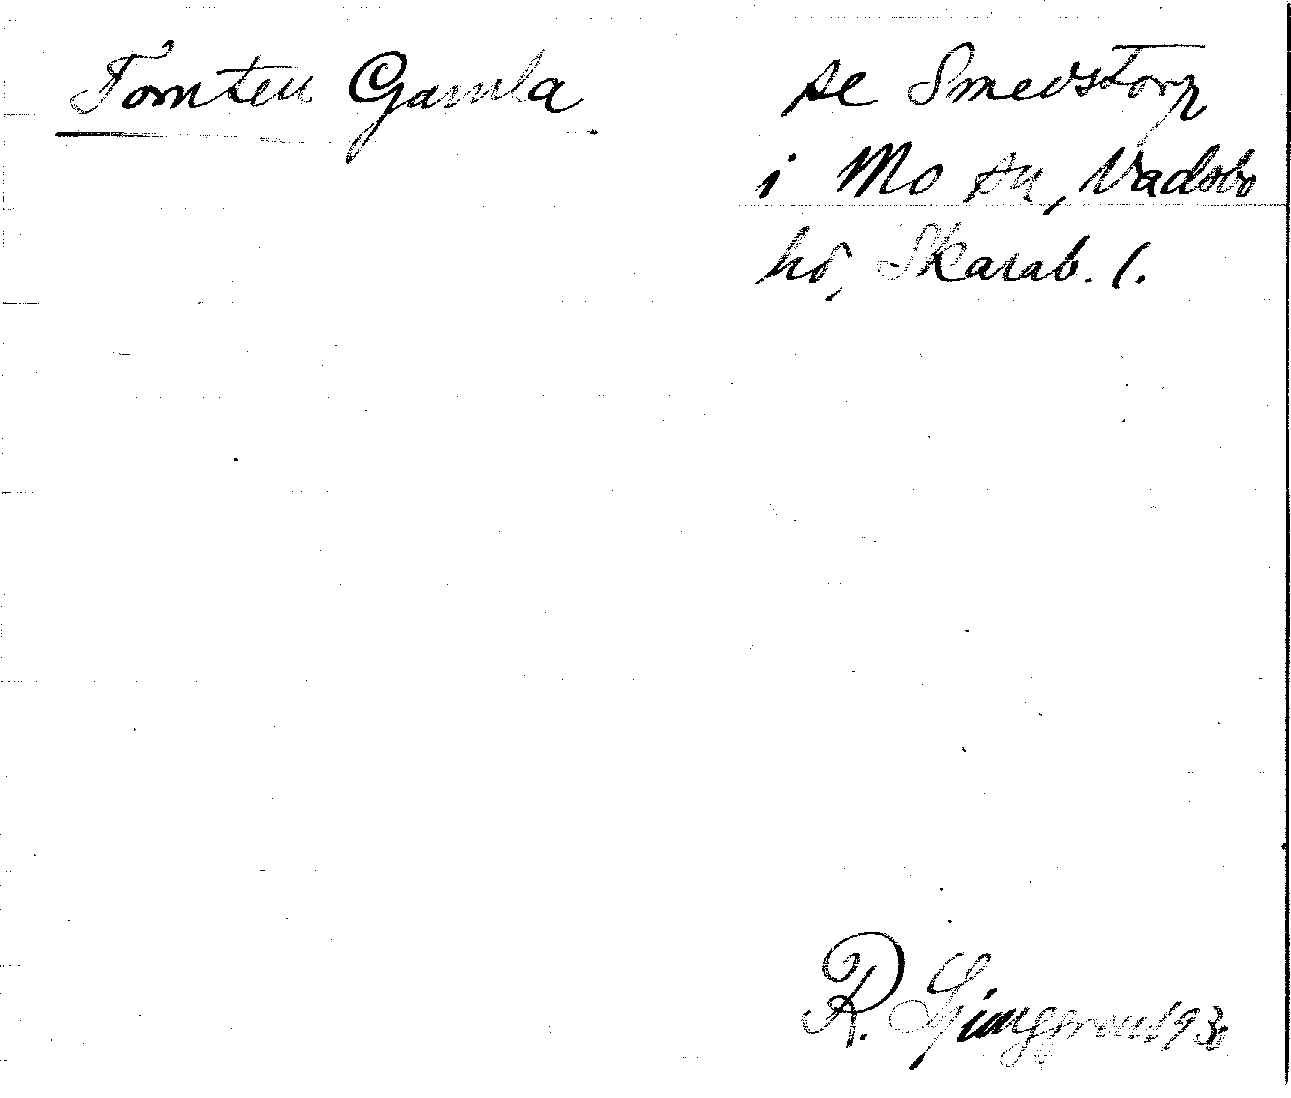 Tomten Gamla
se Smedstorp
i Mo sn, Vadsbo
hd, Skarab. l.
R. Ljunggren 1930